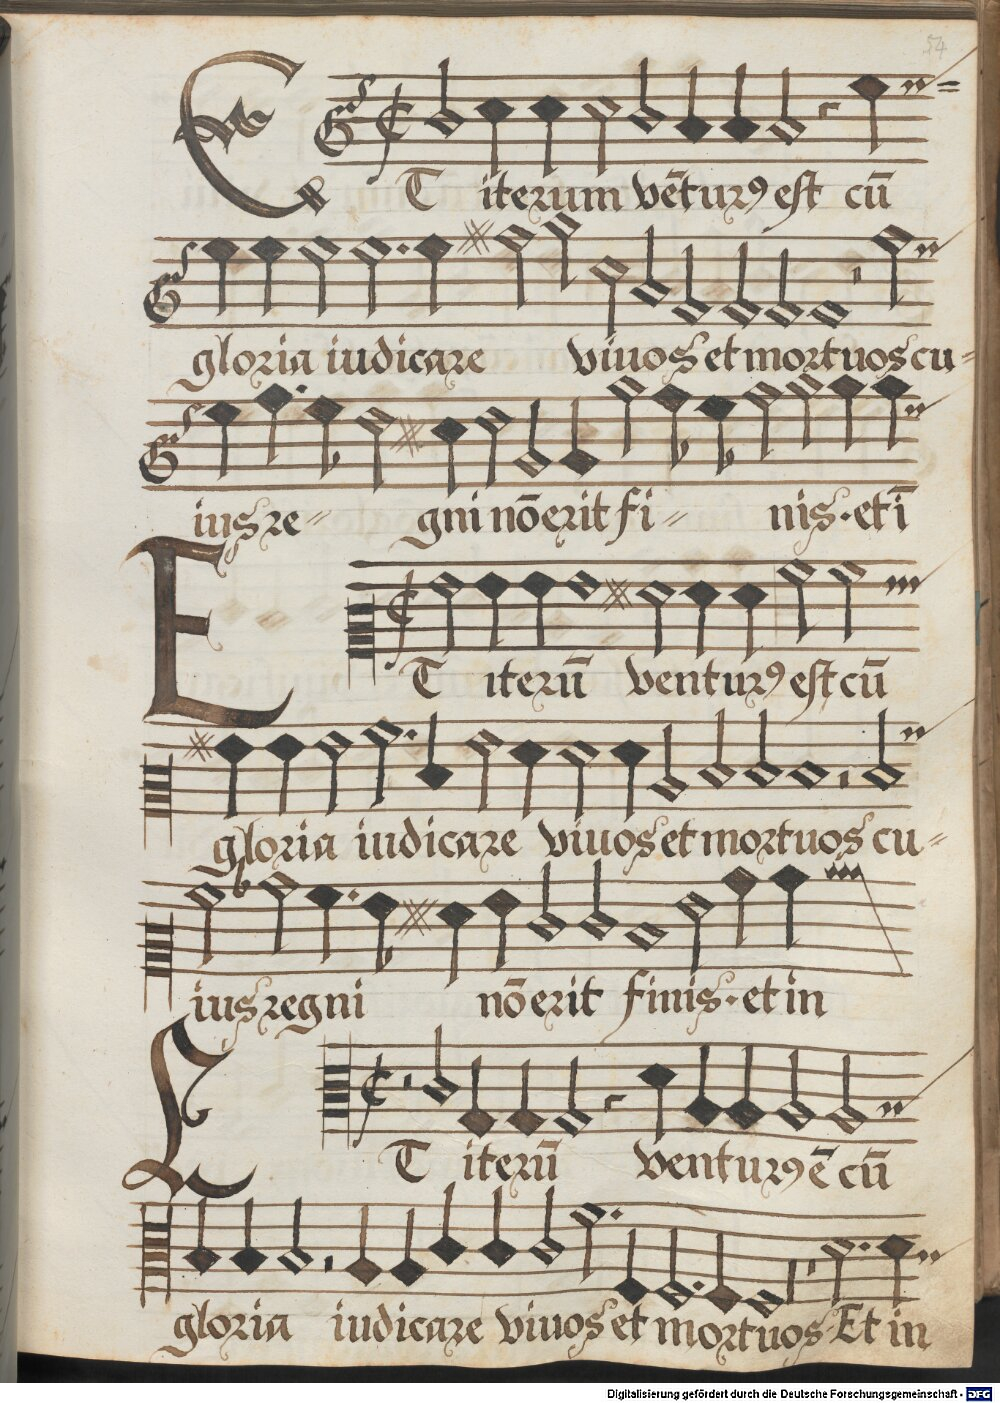 54
ET iterum vēturꝰ est cū
gloria iudicare viuos et mortuos cu=
ius re= gni nō erit fi= nis · et ī
ET iterū venturꝰ est cū
gloria iudicare viuos et mortuos cu=
ius regni nō erit finis · et in
ET iterū venturꝰ ē cū
gloria iudicare viuos et mortuos · Et in
Digitalisierung gefördert durch die Deutsche Forschungsgemeinschaft - DFG